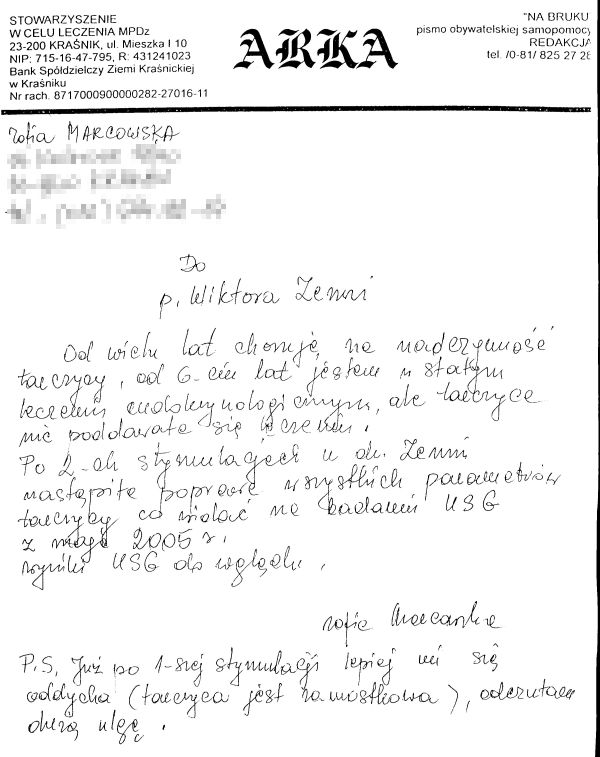 STOWARZYSZENIE
W CELU LECZENIA MPDz
23-200 KRAŚNIK, ul. Mieszka I 10
NIP: 715-16-47-795, R: 431241023
Bank Spółdzielczy Ziemi Kraśnickiej
w Kraśniku
Nr rach. 8717000900000282-27016-11
ARKA
"NA BRUKU
pismo obywatelskiej samopomocy
REDAKCJA
tel. /0-81/ 825 27 28
Zofia MARCOWSKA
Do
p. Wiktora Zenni
Od wielu lat choruję na nadczynność
tarczycy, od 6-ciu lat jestem w stałym
leczeniu endokrynologicznym, ale tarczyca
nie poddawała się leczeniu.
Po 2-ch stymulacjach u dr. Zenni
nastąpiła poprawa wszystkich parametrów
tarczycy co widać na badaniu USG
z maja 2005 r.
wyniki USG do wglądu.
Zofia Marcowska
P.S. Już po 1-szej stymulacji lepiej mi się
oddycha (tarczyca jest zamostkowa), odczułam
dużą ulgę.